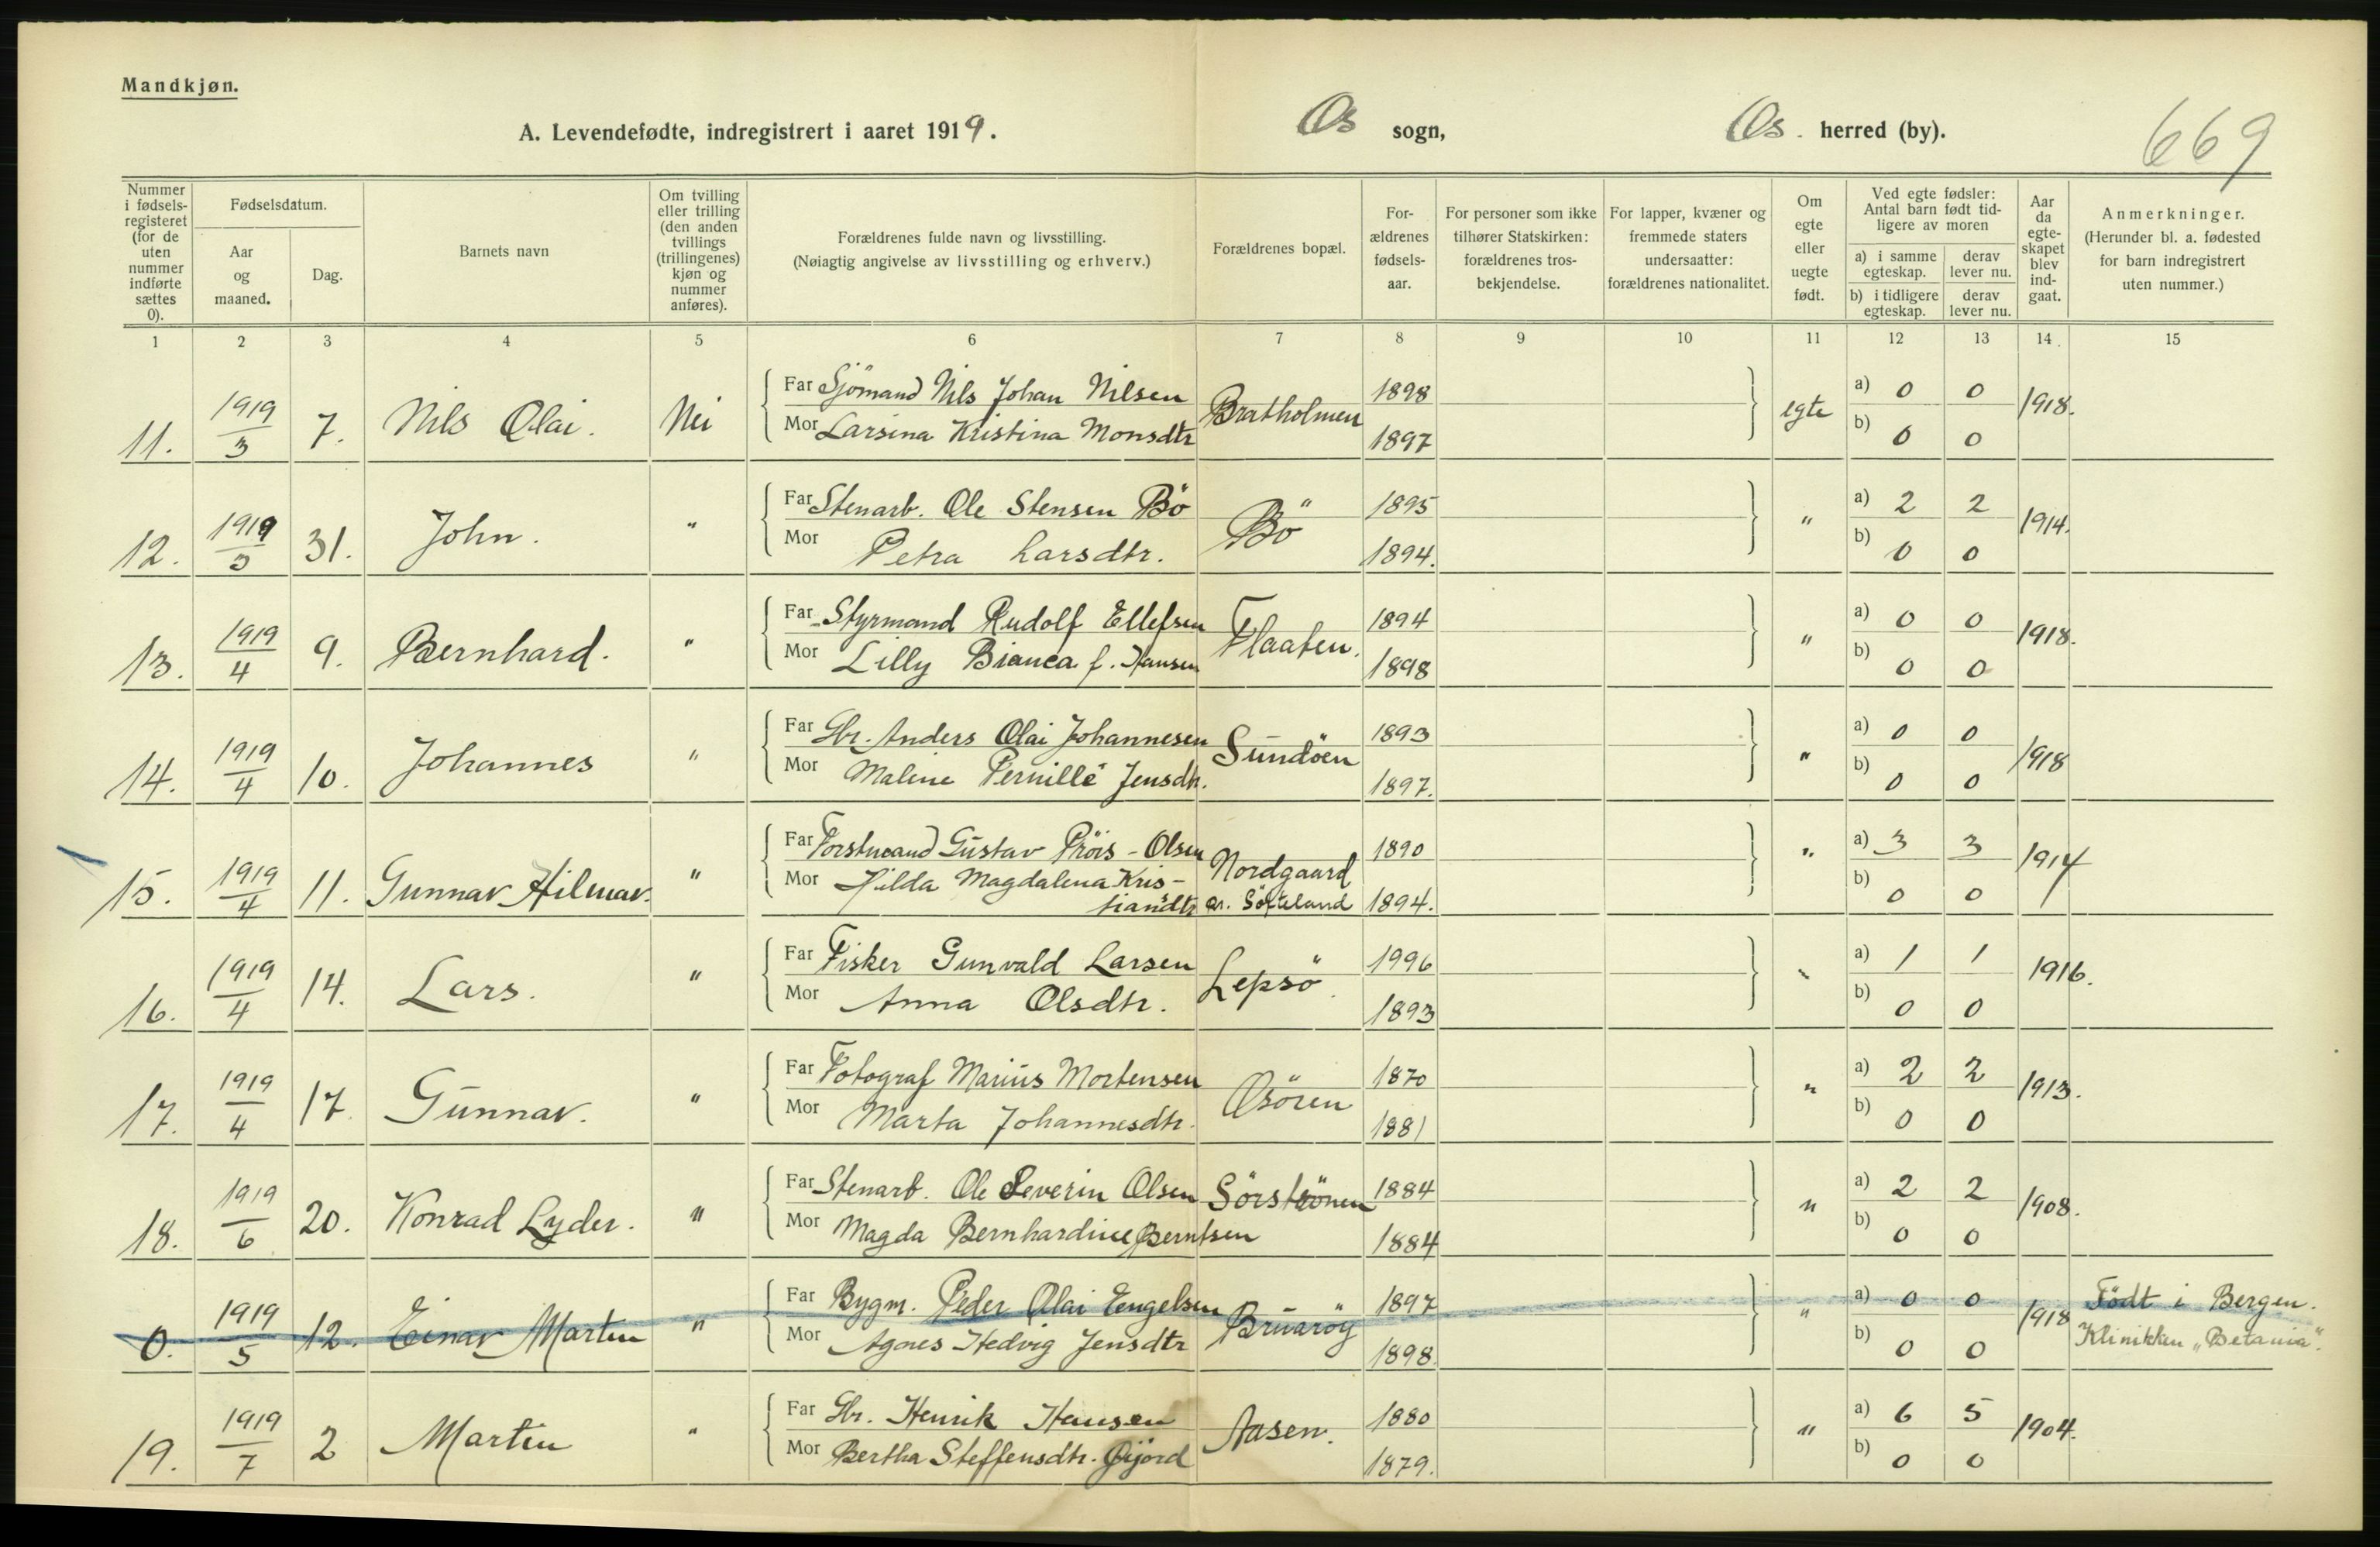 Mandkjøn.
A. Levendefødte, indregistrert i aaret 1919.
Os sogn,
Os. herred (by).
669
Nummer i fødsels- registeret (for de uten nummer indførte sættes 0).
Fødselsdatum.
Aar og maaned.
Dag.
Barnets navn
Om tvilling eller trilling (den anden tvillings (trillingenes) kjøn og nummer anføres).
Forældrenes fulde navn og livsstilling.
(Nøiagtig angivelse av livsstilling og erhverv.)
Forældrenes bopæl.
For- ældrenes fødsels- aar.
For personer som ikke tilhører Statskirken: forældrenes tros- bekjendelse.
For lapper, kvæner og fremmede staters undersaatter: forældrenes nationalitet.
Om egte eller uegte født.
Ved egte fødsler: Antal barn født tid- ligere av moren
a) i samme egteskap.
derav lever nu.
b) i tidligere egteskap.
derav lever nu.
Aar da egte- skapet blev ind- gaat.
Anmerkninger.
(Herunder bl. a. fødested for barn indregistrert uten nummer.)
1 2 3 4 5 6 7 8 9 10 11 12 13 14 15
11. 1919/3 7. Nils Olai. Nei Far Sjömand Nils Johan Nilsen Bratholmen 1898 egte a) 0 0 1918.
Mor Larsina Kristina Monsdtr 1897 b) 0 0
12. 1919/3 31. John. " Far Stenarb. Ole Stensen Bö Bö 1895 " a) 2 2 1914.
Mor Petra Larsdtr. 1894. b) 0 0
13. 1919/4 9. Bernhard. " Far Styrmand Rudolf Ellefsen Flaaten. 1894 " a) 0 0 1918.
Mor Lilly Bianca f. Hansen 1898 b) 0 0
14. 1919/4 10. Johannes " Far Gbr. Anders Olai Johannesen Sundöen 1893 " a) 0 0 1918
Mor Maline Pernille Jensdtr. 1897. b) 0 0
15. 1919/4 11. Gunnar Hilmar. " Far Forstmand Gustav Pröis-Olsen Nordgaard 1890 " a) 3 3 1914
Mor Hilda Magdalena Kris-
tiansdtr Söfteland 1894. b) 0 0
16. 1919/4 14. Lars. " Far Fisker Gunvald Larsen Lepsö. 1996 " a) 1 1 1916.
Mor Anna Olsdtr. 1893 b) 0 0
17. 1919/4 17. Gunnar. " Far Fotograf Marius Mortensen Osören 1870 " a) 2 2 1913.
Mor Marta Johannesdtr. 1881 b) 0 0
18. 1919/6 20. Konrad Lyder. " Far Stenarb. Ole Severin Olsen Sörströnen 1884 " a) 2 2 1908.
Mor Magda Bernhardine Berntsen 1884 b) 0 0
0. 1919/5 12. Einar Martin " Far Bygm. Peder Olai Engelsen Bruaröy 1897 " a) 0 0 1918 Födt i Bergen.
Mor Agnes Hedvig Jensdtr 1898. b) 0 0 Klinikken „Betania".
19. 1919/7 2 Martin " Far Gbr. Henrik Hansen Aasen. 1880 " a) 6 5 1904.
Mor Bertha Steffensdtr. Gjörd 1879. b) 0 0